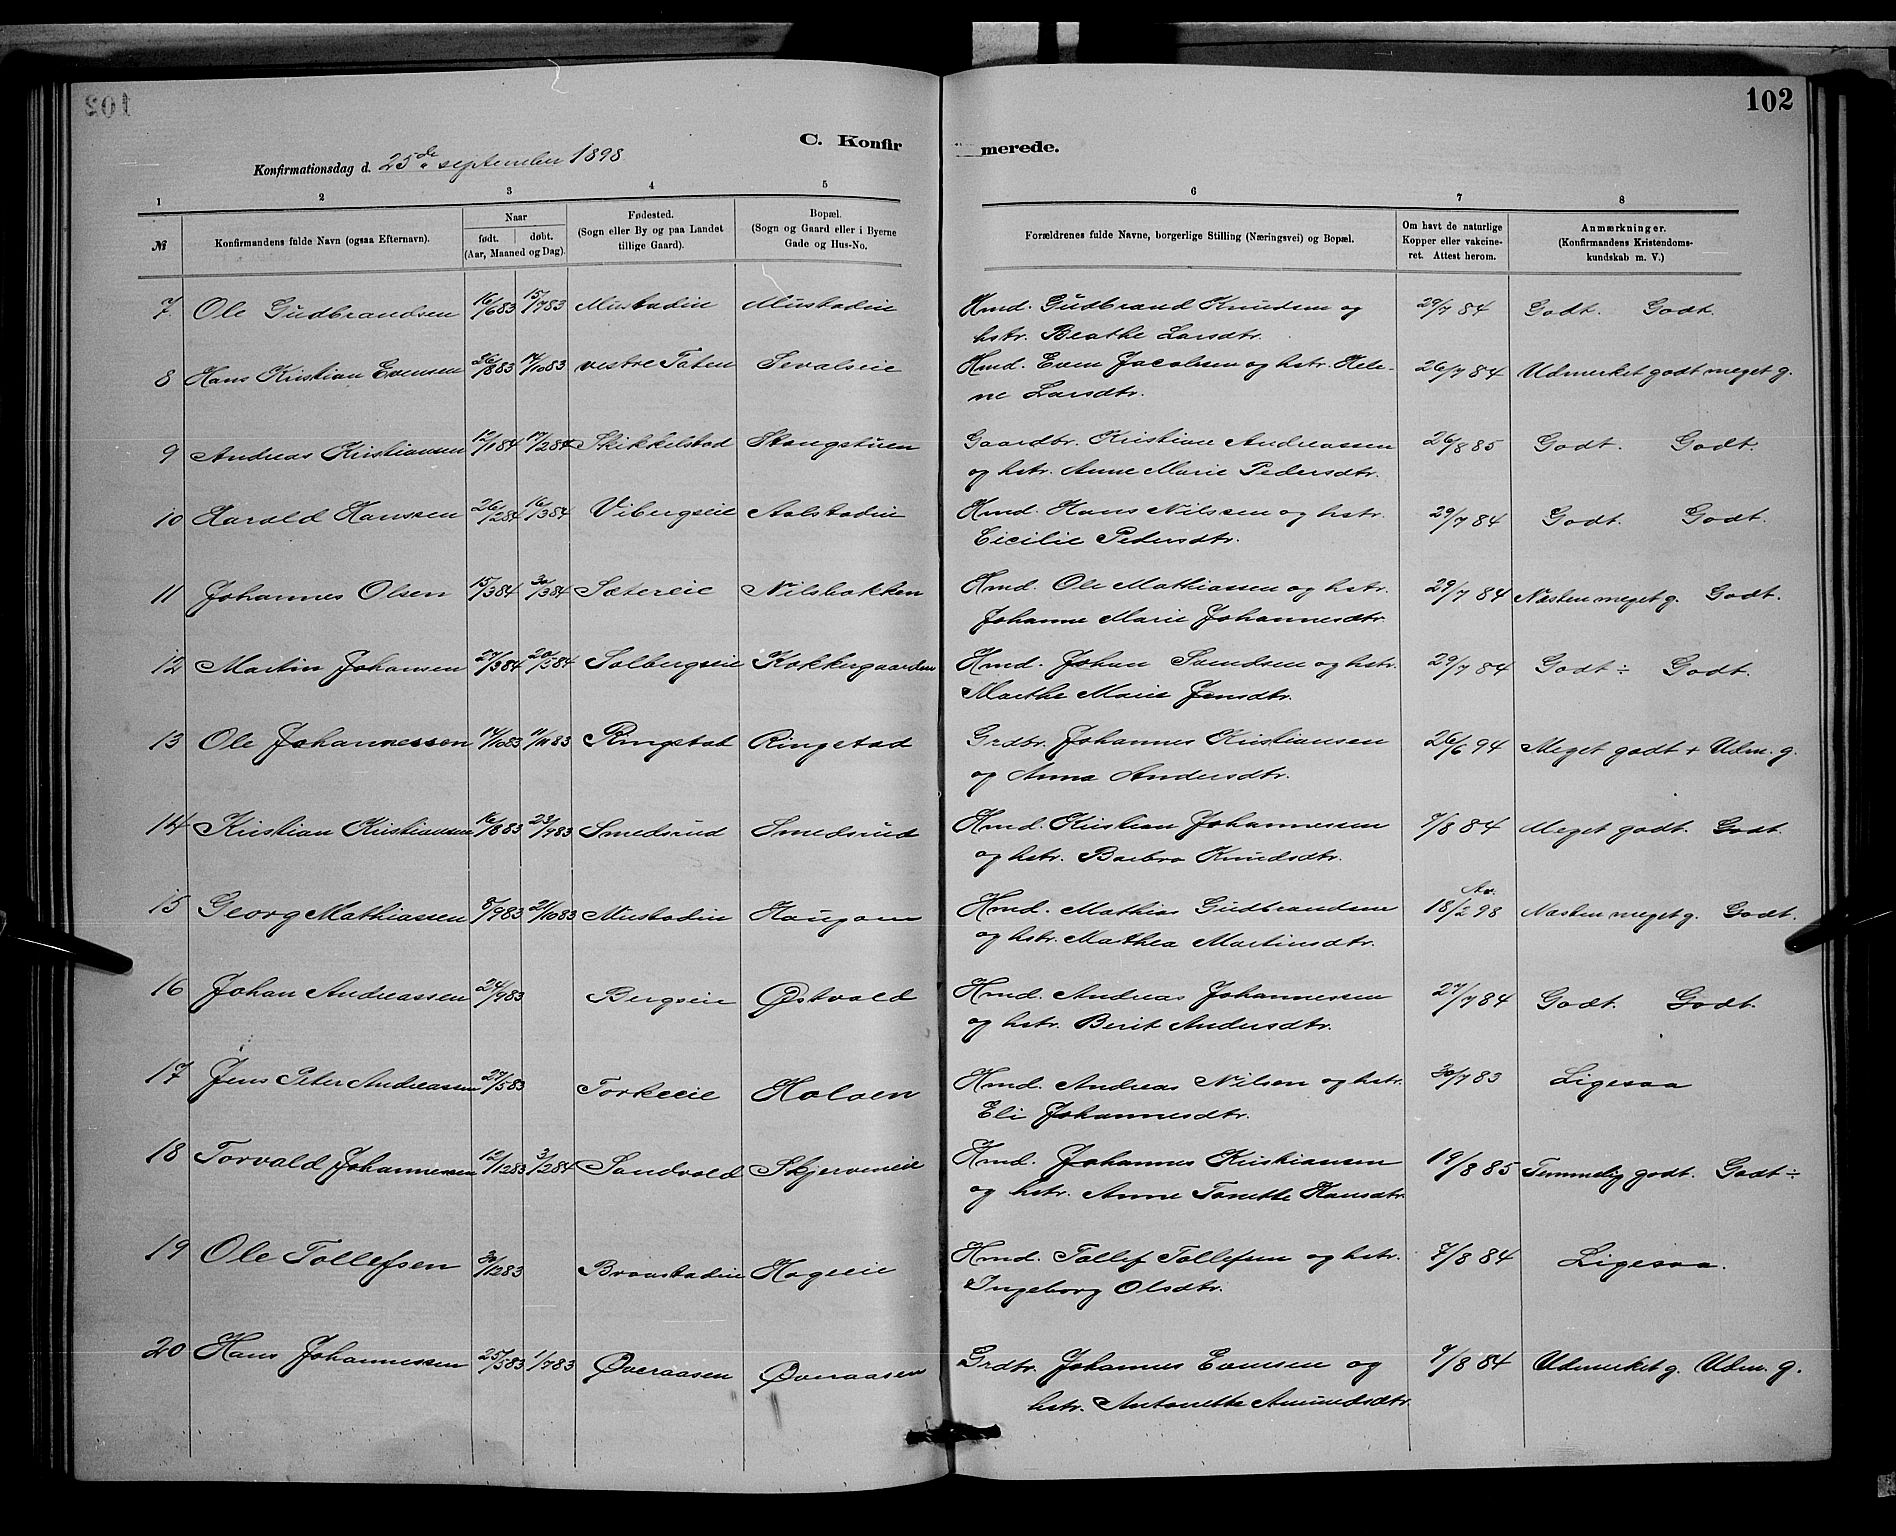 102
C. Konfirmerede.
Konfirmationsdag d. 25de september 1898
1 2 3 4 5 6 7 8
№ Konfirmandens fulde Navn (ogsaa Efternavn). Naar født. døbt. (Aar, Maaned og Dag). Fødested. (Sogn eller By og paa Landet tillige Gaard). Bopæl. (Sogn og Gaard eller i Byerne Gade og Hus-No. Forældrenes fulde Navne, borgerlige Stilling (Næringsvei) og Bopæl. Om havt de naturlige Kopper eller vakcineret. Attest herom. Anmærkninger. (Konfirmandens Kristendomskundskab m. V.)
7. Ole Gudbrandsen 16/6 83 15/7 83 Mustadeie Mustadeie Hmd. Gudbrand Knudsen og 29/7 84 Godt. Godt.
hstr. Beathe Larsdtr.
8 Hans Kristian Evensen 26/8 83 14/10 83 vestre Toten Sevalseie Hmd. Even Jacobsen og hstr. Hele- 26/7 84 Udmerket godt meget g.
ne Larsdtr.
9 Andreas Kristiansen 12/1 84 17/2 84 Skikkelstad Stangstuen Gaardbr. Kristian Andreassen 26/8 85 Godt. Godt.
og hstr. Anne Marie Pedersdtr.
10 Harald Hanssen 26/2 84 16/3 84 Vibergseie Aalstadeie Hmd. Hans Nilssen og hstr. 29/7 84 Godt. Godt.
Cicilie Pedersdtr.
11 Johannes Olsen 15/3 84 30/3 84 Sætereie Nilsbakken Hmd. Ole Mathiassen og hstr. 29/7 84 Næsten meget g. Godt.
Johanne Marie Johannesdtr
12 Martin Johansen 27/3 84 20/5 84 Solbergseie Kokkergaarden Hmd. Johan Samdsen og hstr. 29/7 84 Godt ÷ Godt.
Marthe Marie Jensdtr.
13 Ole Johannessen 14/10 83 11/11 83 Ringstad Ringstad Grdbr. Johannes Kristiansen 26/6 94 Meget godt + Udm. g.
og Anna Andersdtr.
14 Kristian Kristiansen 16/8 83 23/9 83 Smedsrud Smedsrud Hmd. Kristian Johannessen 7/8 84 Meget godt. Godt.
og hstr. Barbro Knudsdtr.
15 Georg Mathiassen 8/9 83 21/10 83 Mustadeie Haugom Hmd. Mathias Gudbrandsen 18/2 98 Næsten meget g. Godt.
og hstr. Mathea Martinsdtr.
16 Johan Andreassen 24/9 83 Bergseie Østvold Hmd. Andreas Johannessen 27/7 84 Godt. Godt.
og hstr. Berit Andersdtr.
17 Jens Peter Andreassen 27/5 83 Torkeeie Holoen Hmd. Andreas Nilsen og hstr. 30/7 83 Ligesaa
Eli Johannesdtr.
18 Torvald Johannessen 12/12 83 3/2 84 Sandvold Skjerveneie Hmd. Johannes Kristiansen 19/8 85 Temmelig godt. Godt ÷
og hstr. Anne Tonette Hansdtr.
19 Ole Tollefsen 31/12 83 Braastadeie Hageeie Hmd. Tollef Tollefsen og hstr. 7/8 84 Ligesaa.
Ingeborg Olsdtr.
20 Hans Johannessen 25/5 83 1/7 83 Øveraasen Øveraasen Grdbr. Johannes Evensen og 7/8 84 Udmerket g. Udm. g.
hstr. Antonette Amundsdtr